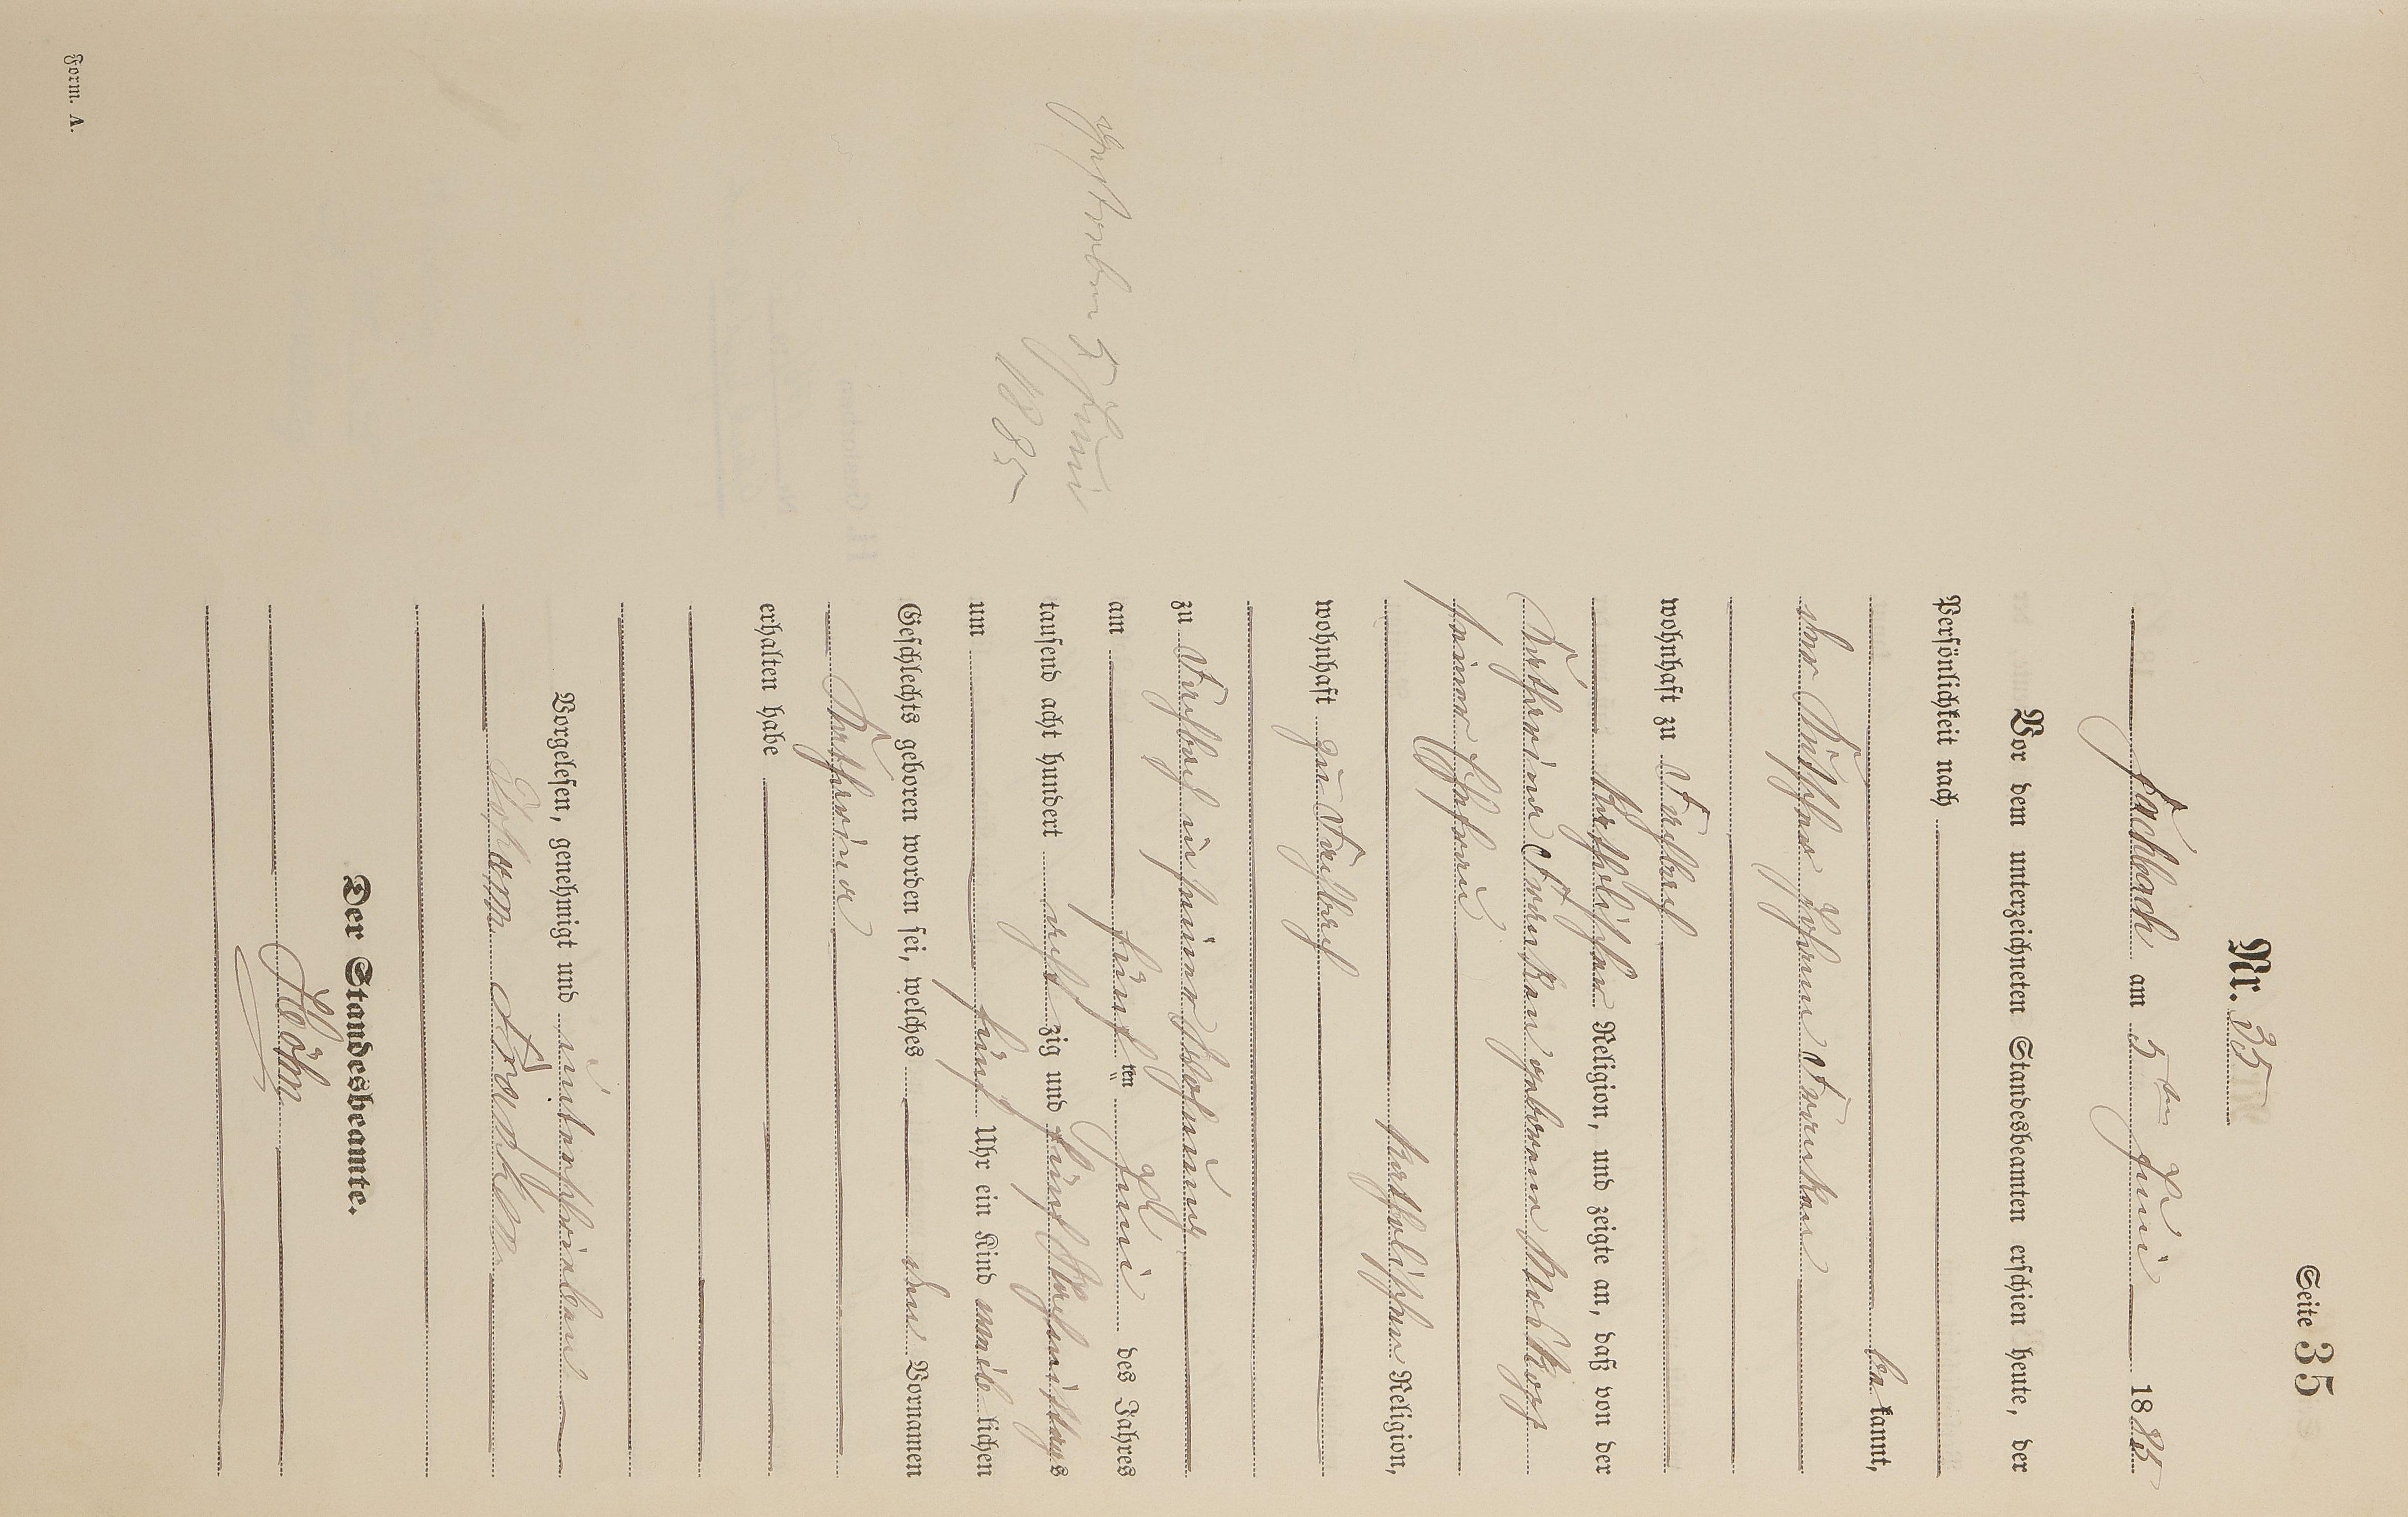 Seite 35
Nr. 35
Fachbach am 5ten Juni 1885
Vor dem unterzeichneten Standesbeamten erschien heute, der
Persönlichkeit nach
bekannt,
der Johann Franken
wohnhaft zu Fachbach
katholischer Religion, und zeigte an, daß von der
Katharina Franken geborene
seiner Ehefrau
katholischer Religion,
wohnhaft zu Fachbach
zu Fachbach in seiner Wohnung
am fünften Juni des Jahres
tausend acht hundert achtzig und fünf Nachmittags
um fünf Uhr ein Kind weiblichen
Geschlechts geboren worden sei, welches den Vornamen
Katharina
erhalten habe
Vorgelesen, genehmigt und unterschrieben
Johann Franken
Der Standesbeamte.
Höhn
gestorben 5 Juni
1885
Form. A.